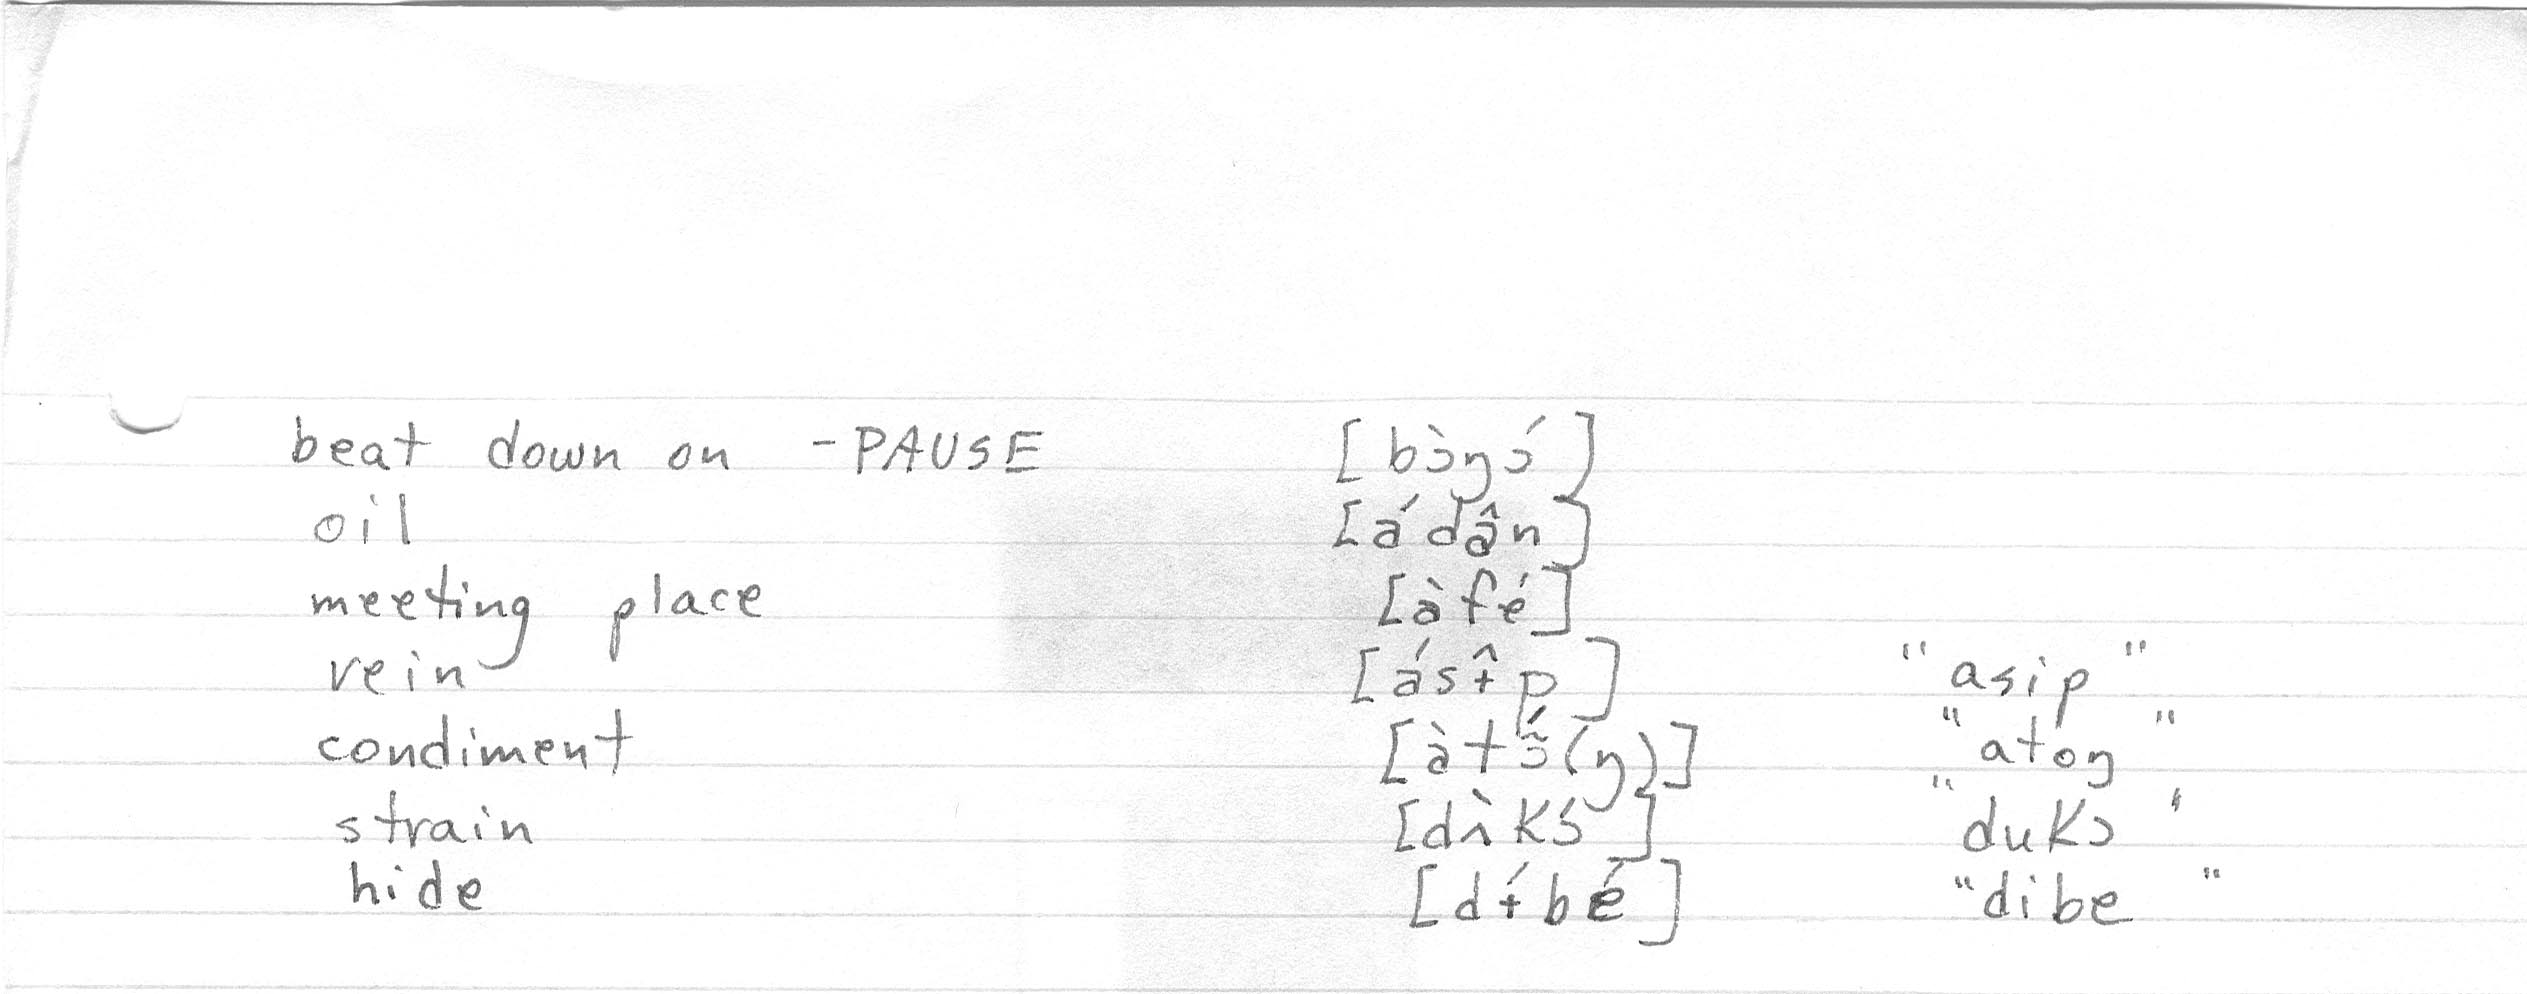 beat down on -PAUSE [bɔ̀ŋɔ́]
oil [ádân]
meeting place [àfé]
vein [ásɨ̂p] "asip"
condiment [àtɔ̃́(ŋ)] "atoŋ"
strain [dʌ̀kɔ́] "dukɔ"
hide [dɨ́bé] "dibe"